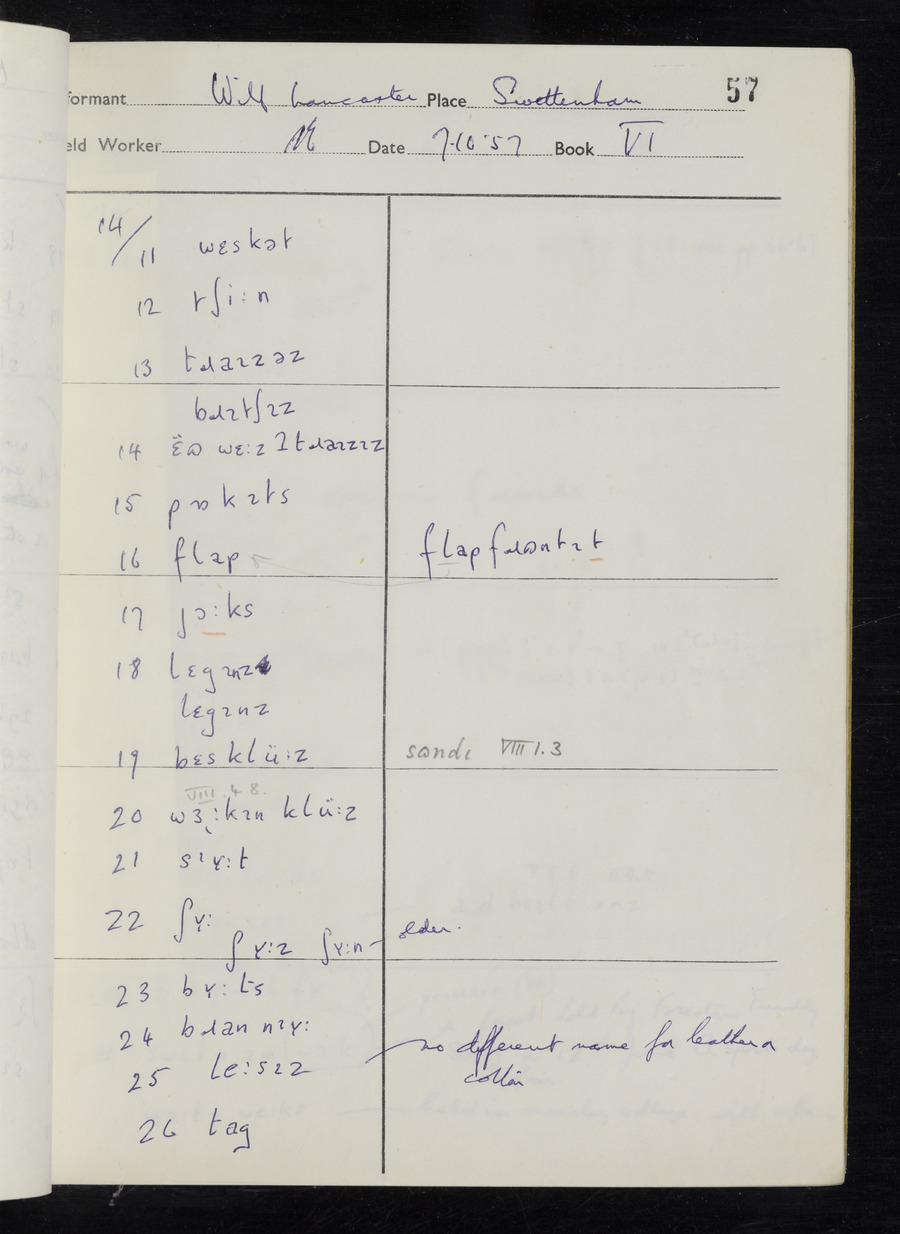 formant Wilf Lancaster Place Swettenham 57
eld Worker Date 7·10·57 Book VI
14/11 wɛskət
12 tʃiːn
13 tɹaɪzəz
bɹɪtʃɪz
14
15 pɒkɪts
16 flap flapfɹɷntɪt
17 jɔːks
18 lɛgɪnz
lɛgɪnz
19 bɛs klüːz sɷndɪ VIII 1.3
VIII.4 8.
20 wɜːkɪn klüːz
21 sɪʏːt
22 ʃʏː older.
ʃʏːz ʃʏːn
23 bʏːts
24 bɹan nɪʏː
25 leːsɪz no different name for leather or
cotton
26 tag